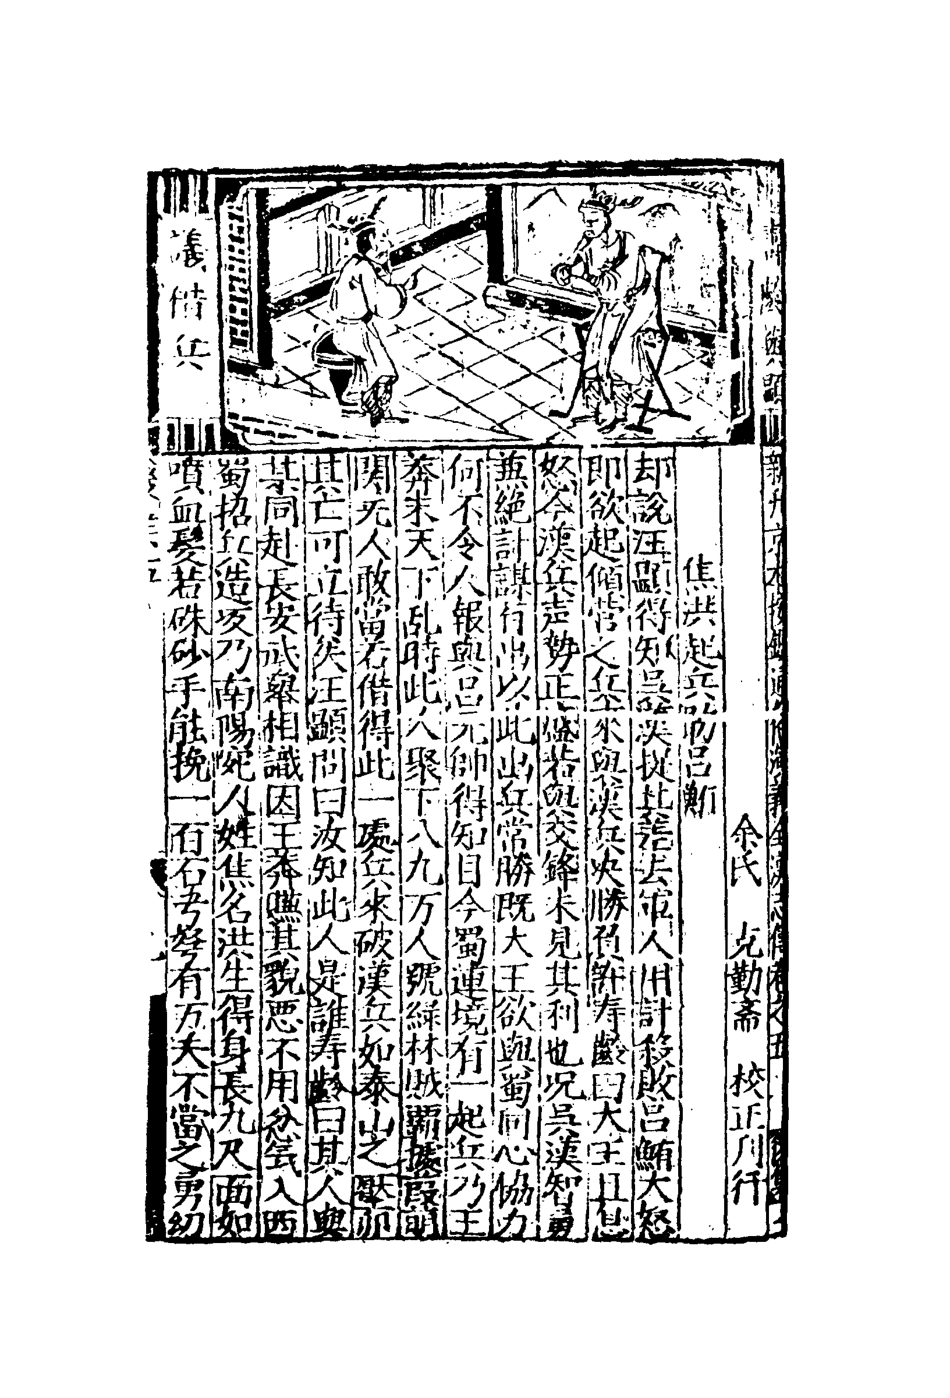 許壽與顯
議借兵
新刊京本按鑑通俗演義全漢志傳卷之五
余氏 克勤斋 校正刋行
焦洪起兵助吕鮪
却說汪顯得知吳漢提其羗去軍人用計殺敗吕鮪大怒
即欲起傾营之兵來與漢兵决勝負許寿齡曰大王且息
怒今漢兵声势正盛若與交鋒未見其利也况吳漢智勇
兼絶計謀行出以此出兵常勝既大王欲與蜀同心協力
何不令人報與吕元帥得知目今蜀連境有一起兵乃王
莽末天下乱時此人聚下八九万人號綠林賊覇據葭萌
関无人敢當若借得此一處兵來破漢兵如泰山之壓卵
其亡可立待矣汪顯問曰汝知此人是誰寿齡曰其人與
某同赴長安武舉相識因王莽嫌其貌悪不用忿氣入西
蜀招兵造反乃南陽宛人姓焦名洪生得身長九尺面如
噴血髮若硃砂手能挽一百石弓弩有万夫不當之勇幼